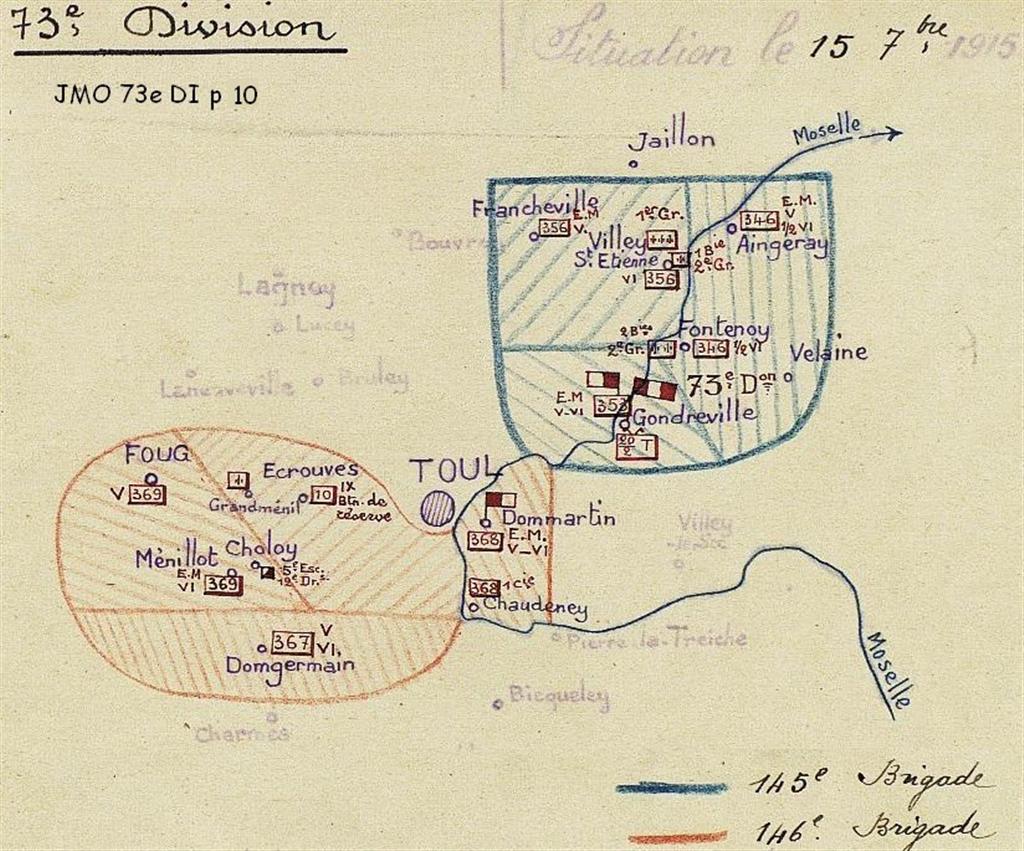 73e Division
Situation le 15 7bre 1915
JMO 73e DI p 10
Moselle
Jaillon
Francheville
E.M
V.
356
1er Gr.
E.M.
V
1/2 VI
346
Aingeray
Villey
St Etienne
1 Bie
2e Gr.
VI 356
Lagney
Lucey
2 Bies
2e Gr.
Fontenoy
346 1/2 VI
Velaine
Bruley
73e Don
E.M
V-VI
353
Gondreville
20
2
T
FOUG
V 369
Ecrouves
Grandménil
10
IX
Btn. de
réserve
TOUL
Dommartin
368 E.M.
V-VI
Villey
-le-Sec
Ménillot
Choloy
E.M
VI
369
5e Esc.
12e Dr.
368 1 cie
Chaudeney
367 V
VI.
Domgermain
Pierre-la-Treiche
Moselle
Bicqueley
Charmes
145e Brigade
146e Brigade